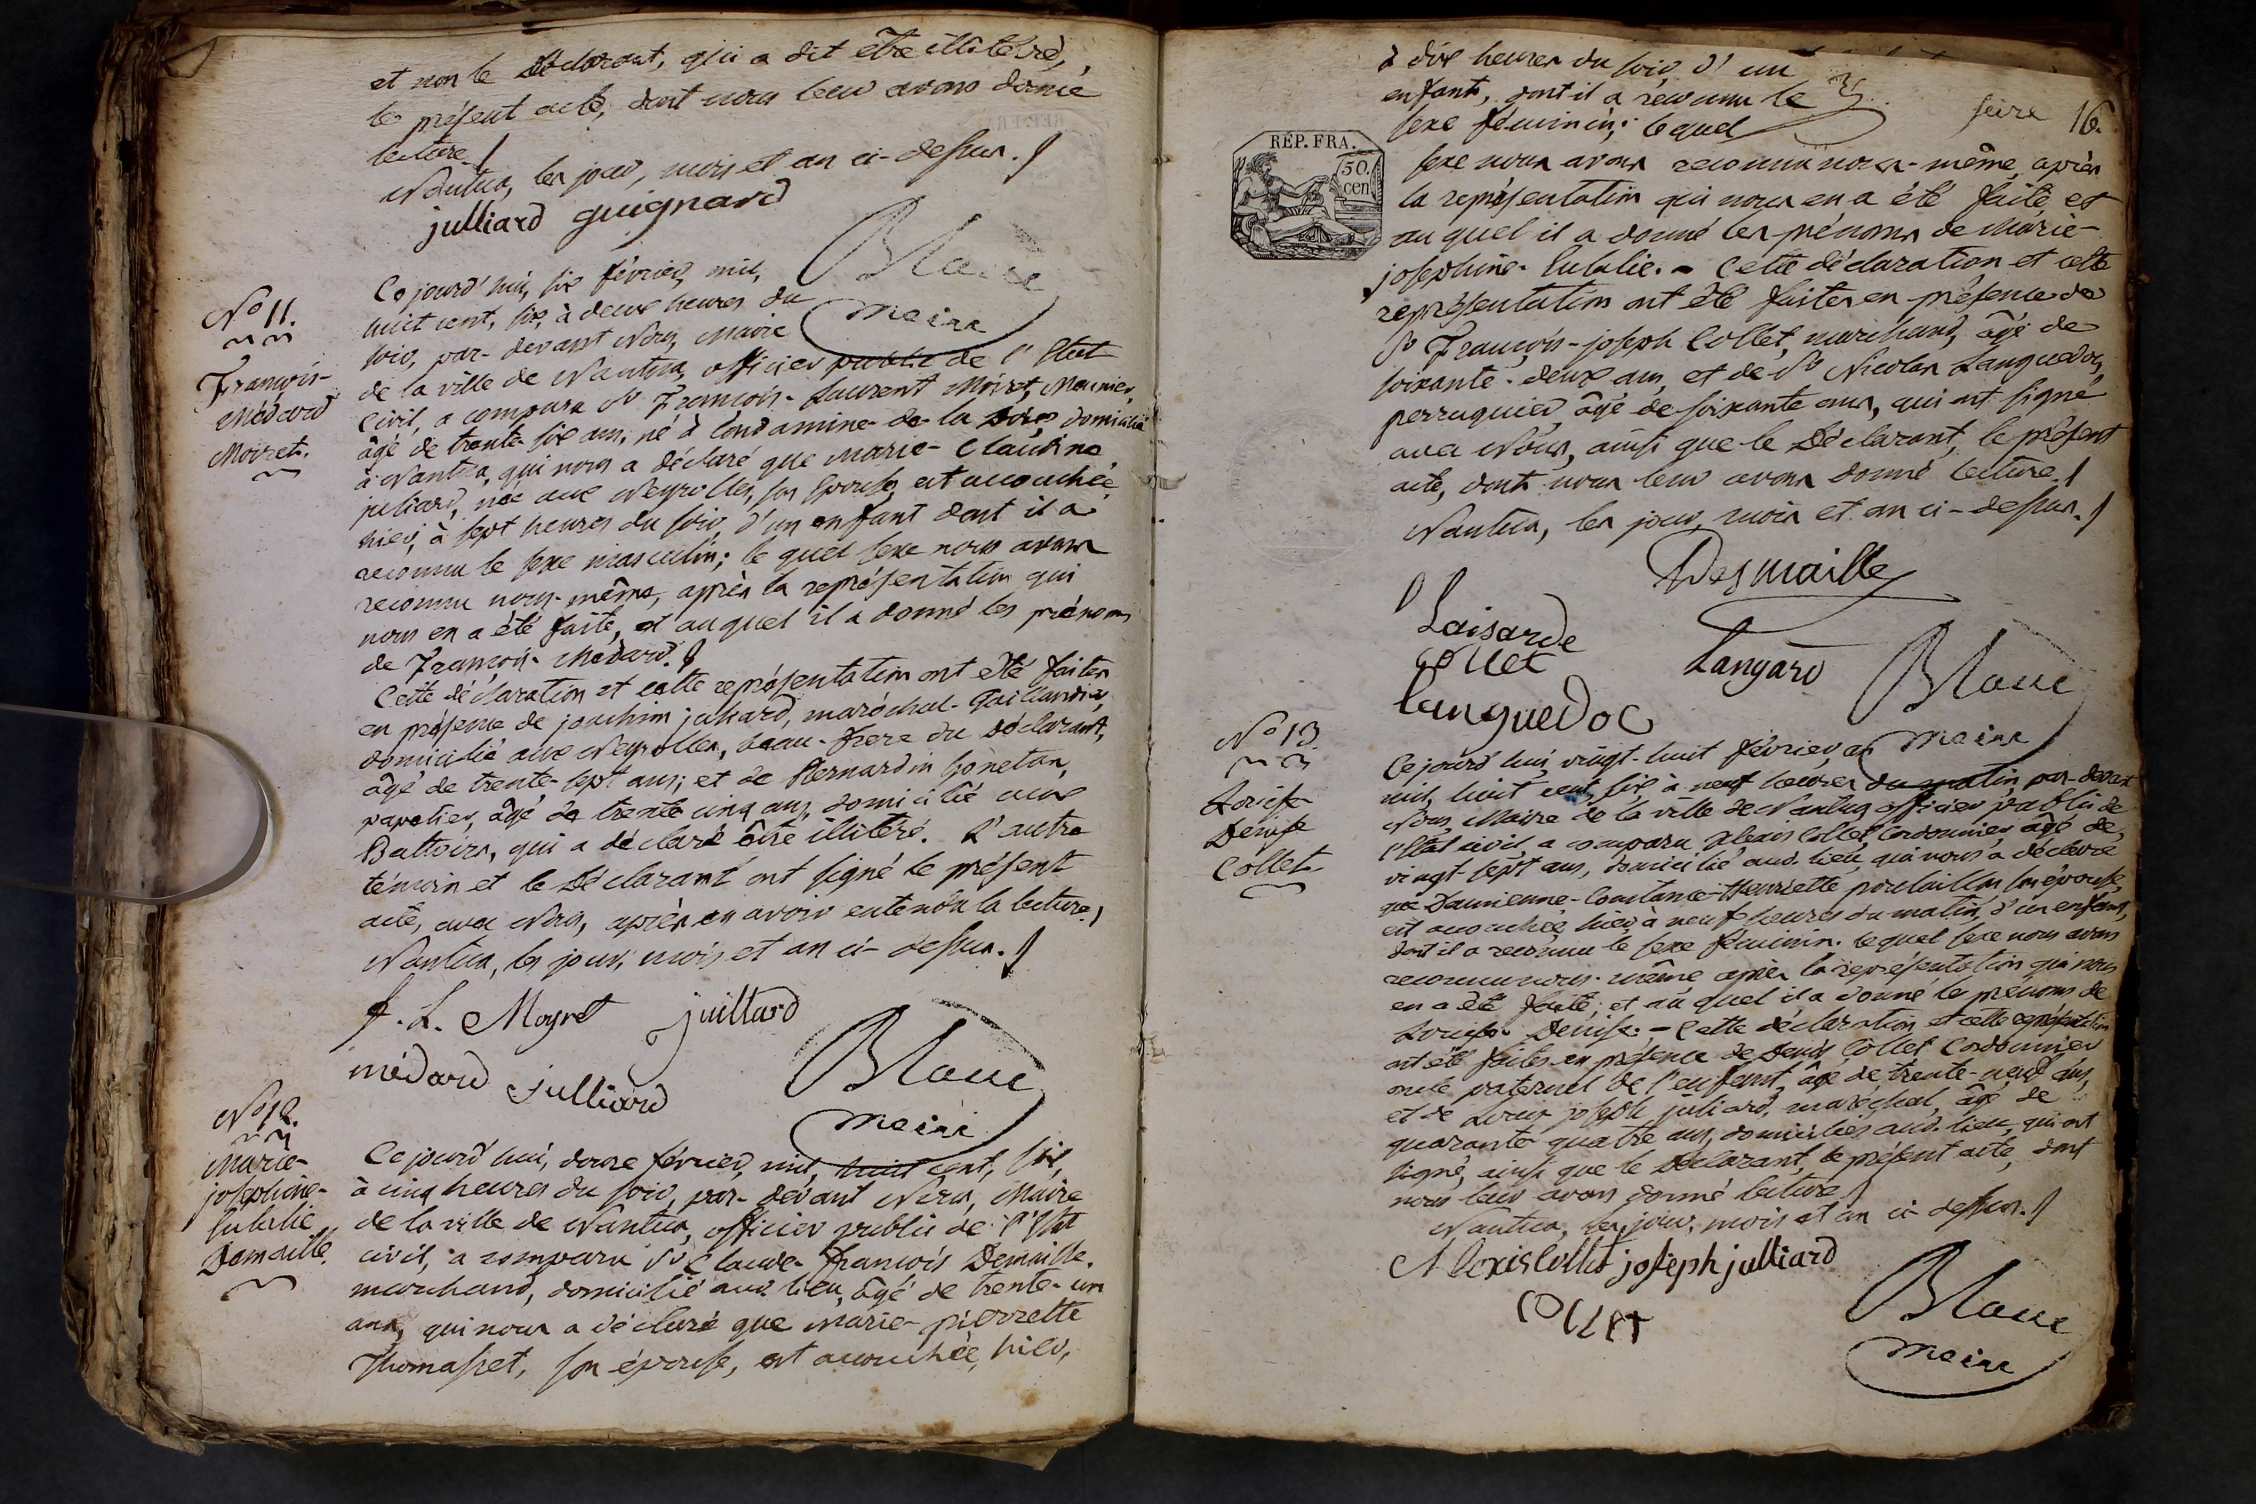 et non le Déclarant, qui a dit être illitéré,
le présent acte, dont nous leur avons donné
lecture.
Nantua, les jour, mois et an ci-dessus.
julliard guignard
Blanc
Maire
N.º 11.
François-
Médard
Moiret.
Ce jourd'hui, six février, mil,
huit cent, six, à deux heures du
soir, par-devant Nous, Maire
de la ville de Nantua, officier public de l'Etat
Civil, a comparu Sr. François-Laurent Moiret, Meunier,
âgé de trente-six ans, né à Condamine-de-la Doye, domicilié
à Nantua, qui nous a déclaré que Marie-Claudine
juliard, née aux Neyrolles, son épouse, est accouchée,
hier, à sept heures du soir, d'un enfant dont il a
reconnu le sexe masculin; le quel sexe nous avons
reconnu nous-même, après la représentation qui
nous en a été faite, et auquel il a donné les prénoms
de François-Médard.
Cette déclaration et cette représentation ont été faites
en présence de joachim juliard, maréchal-Taillandier,
domicilié aux Neyrolles, beau-frere du Déclarant,
âgé de trente-sept ans; et de Bernardin gonetan,
papetier, âgé de trente cinq ans, domicilié aux
Battoirs, qui a déclaré être illitéré. L'autre
témoin et le Déclarant ont signé le présent
acte, avec Nous, après en avoir entendu la lecture.
Nantua, les jour, mois et an ci-dessus.
f. L. Moyret juillard
médard julliard
Blanc
Maire
N.º 12.
Marie-
josephine-
Eulalie
Demaille.
Ce jourd'hui, douze février, mil, huit cent, six,
à cinq heures du soir, par-devant Nous, Maire
de la ville de Nantua, officier public de l'Etat
civil, a comparu Sr. Claude-françois Demaille.
marchand, domicilié aud. lieu, âgé de trente-un
ans, qui nous a déclaré que Marie-pierrette
Thomasset, son épouse, est accouchée, hier,
à dix heures du soir, d'un
enfant, dont il a reconnu le
sexe féminin; lequel
seize 16.
RÉP. FRA.
50.
cen
sexe nous avons reconnu nous-même, après
la représentation qui nous en a été faite et
au quel il a donné les prénoms de Marie-
josephine-Eulalie. - Cette déclaration et cette
représentation ont été faites en présence de
Sr. François-joseph Collet, marchand, âgé de
soixante-deux ans, et de Sr. Nicolas Languedoc,
perruquier, âgé de soixante ans, qui ont signé
avec Nous, ainsi que le Déclarant, le présent
acte, dont nous leur avons donné lecture.
Nantua, les jour, mois et an ci-dessus.
Desmaille
Collet
Languedoc
Blanc
Maire
N.º 13.
Louise
Denise
Collet
Ce jourd'hui, vingt-huit février, an
mil, huit cent, six, à neuf heures du matin, par-devant
Nous, Maire de la ville de Nantua, officier public de
l'Etat civil, a comparu Alexis Collet, Cordonnier, âgé de
vingt-sept ans, domicilié aud. lieu, qui nous a déclaré
que Damienne-Constance-Henriette poulaillon son épouse,
est accouchée hier, à neuf heures du matin, d'un enfant,
dont il a reconnu le sexe féminin. lequel sexe nous avons
reconnu nous-même après la représentation qui nous
en a été faite; et au quel il a donné le prénoms de
Louise Denise. - Cette déclaration et cette représentation
ont été faites en présence de Denis Collet Cordonnier
oncle paternel de l'enfant, âgé de trente-neuf ans,
et de Louis joseph juliard, maréchal, âgé de
quarante quatre ans, domiciliés aud. lieu, qui ont
signé, ainsi que le Déclarant, le présent acte, dont
nous leur avons donné lecture
Nantua, les jour, mois et an ci-dessus.
Alexis Collet joseph julliard
collet
Blanc
Maire